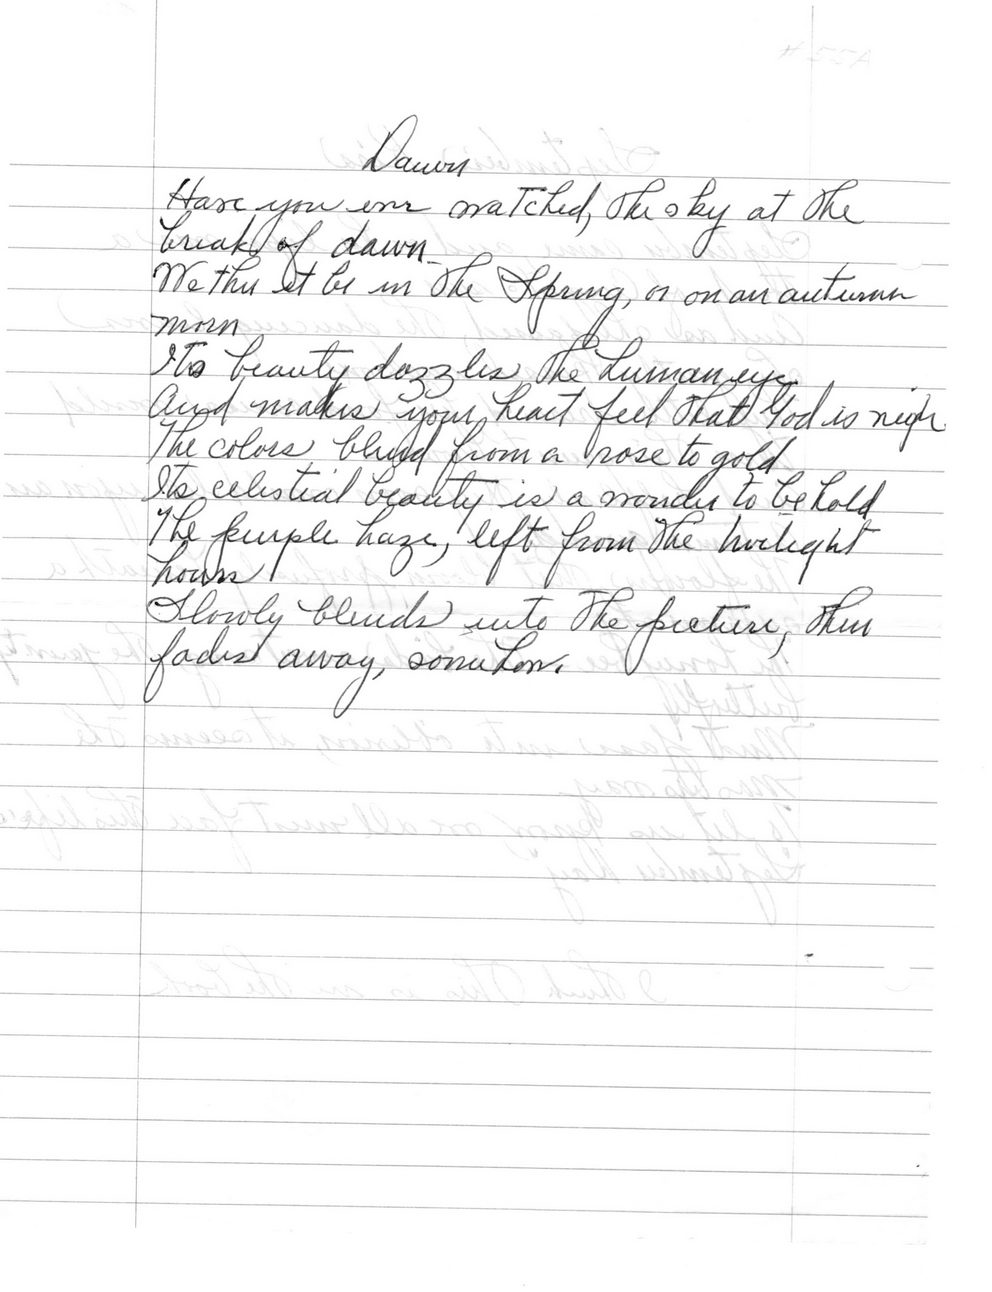 Dawn
Have you ever watched, the sky at the
break of dawn
Wether it be in the Spring, or on an autumn
morn
Its beauty dazzles the human eye
And makes your heart feel that God is nigh
The colors blend from a rose to gold
Its celestial beauty is a wonder to behold
The purple haze, left from the twilight
hours
Slowly blends into the picture, then
fades away, somehow.